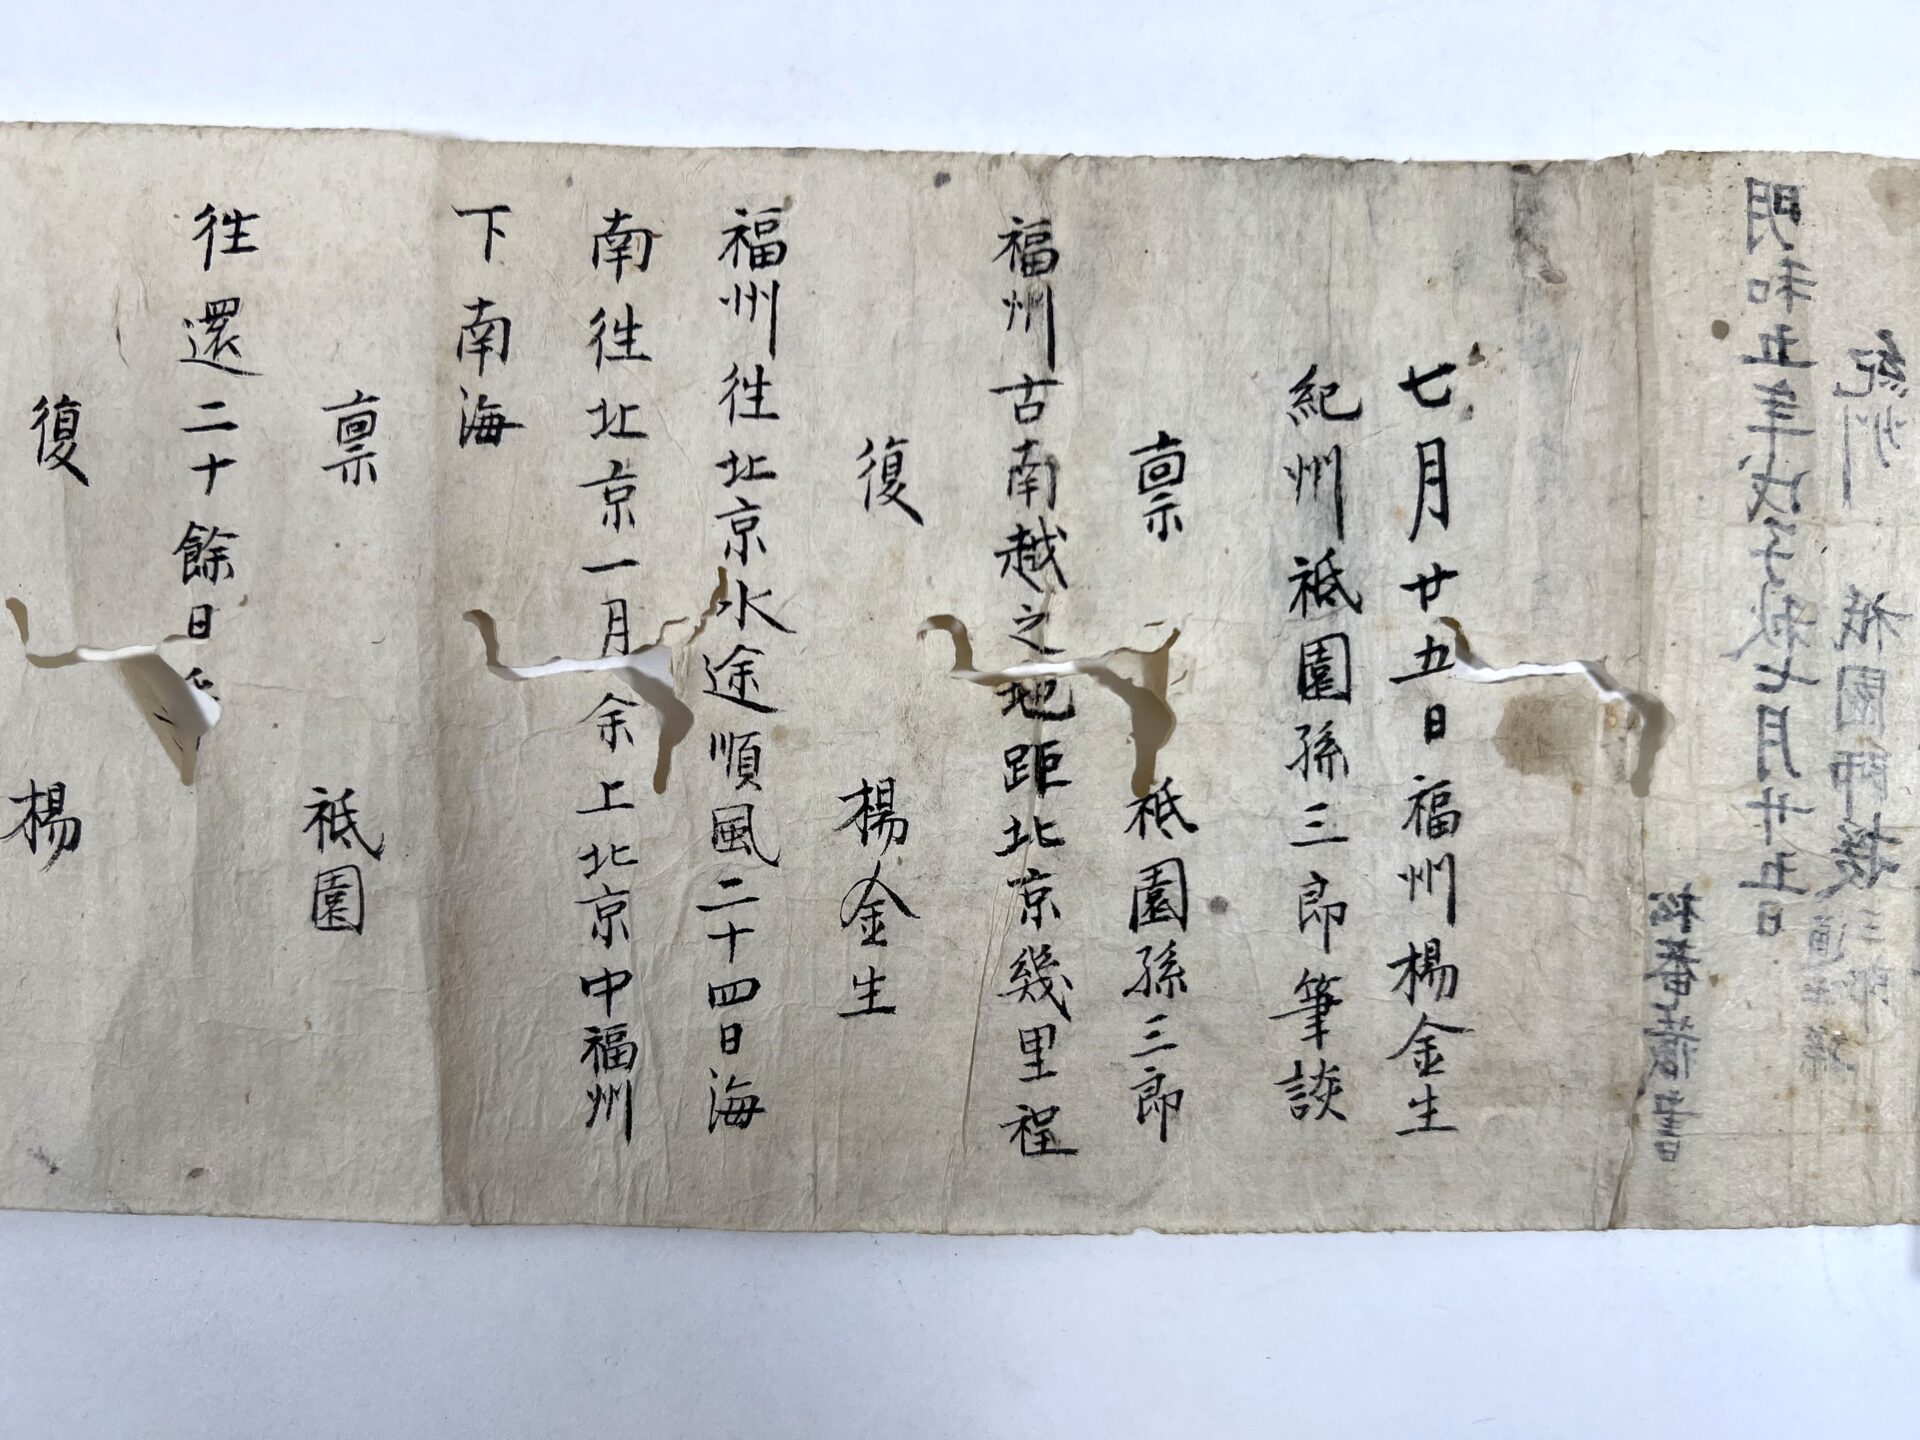 紀州 祇園師援
明和五年戊子秋七月廿五日
七月廿五日福州楊金生
紀州祗園孫三郎筆談
稟 祗園孫三郎
福州古南越之地距北京幾里程
復 楊金生
福州往北京水途順風二十四日海
南往北京一月余上北京中福州
下南海
稟 祗園
往還二十餘日
復 楊